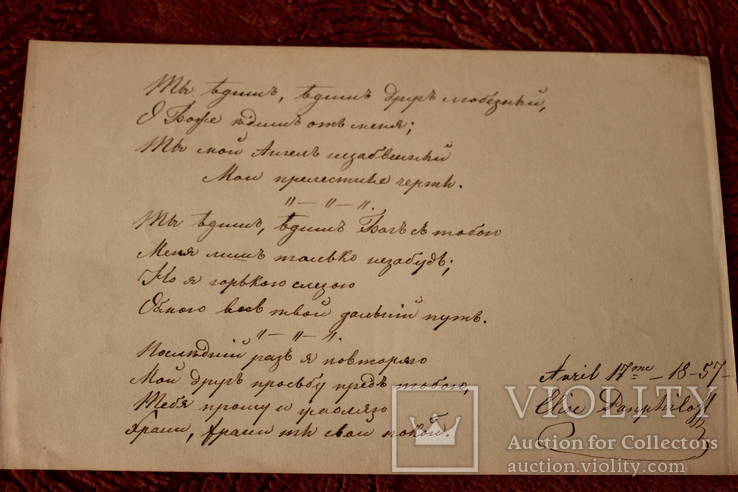 Ты ѣдишь, ѣдишь другъ любезный,
О Боже ѣдишь отъ меня;
Ты мой Ангелъ незабвенный
Мои прелестные черты.
„ — „ — „.
Ты ѣдишь, ѣдишь Богъ съ тобою
Меня лишь только незабудь;
Но я горькою слезою
Обмою весь твой дальный путь.
„ — „ — „.
Послѣдній разъ я повторяю
Мой другъ просьбу предъ тобою,
Тебя прошу и умоляю
Храни, храни ты свой покой.
Avril 17me – 18-57-
Elise Pamphiloff
VIOLITY
Auction for Collectors
auction.violity.com